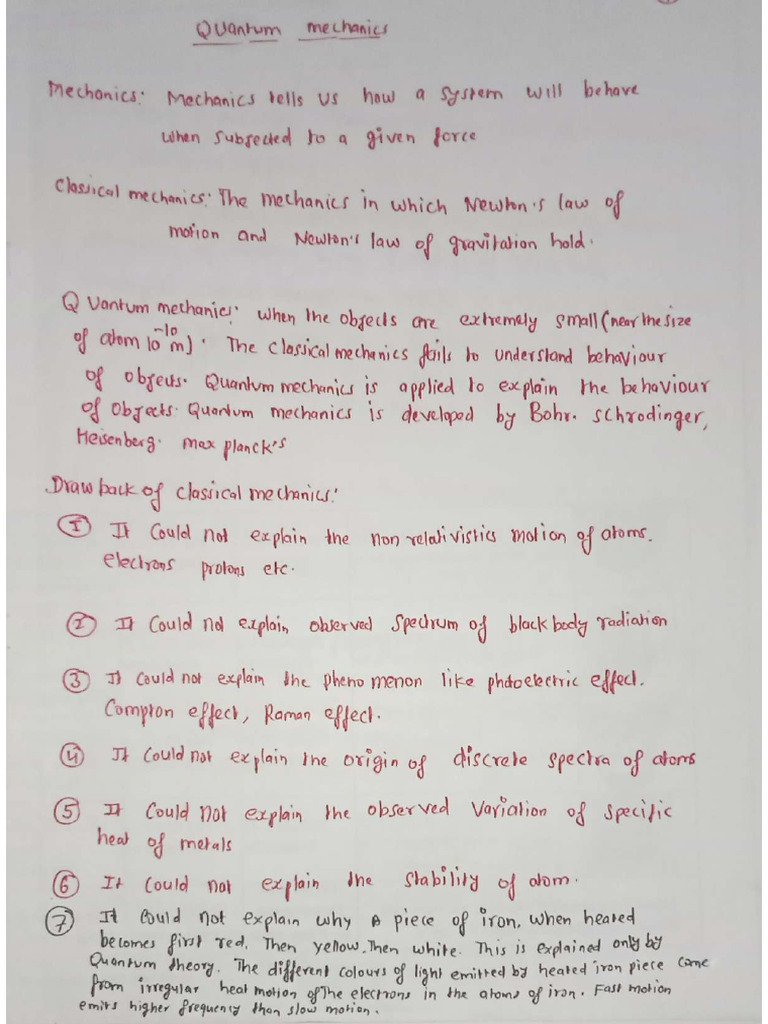 Quantum mechanics
Mechanics: Mechanics tells us how a system will behave
when subjected to a given force
Classical mechanics: The mechanics in which Newton's law of
motion and Newton's law of gravitation hold.
Quantum mechanics: when the objects are extremely small (near the size
of atom 10⁻¹⁰ m). The classical mechanics fails to understand behaviour
of objects. Quantum mechanics is applied to explain the behaviour
of objects. Quantum mechanics is developed by Bohr. schrodinger,
Heisenberg. max planck's
Drawback of classical mechanics:
① It could not explain the non relativistics motion of atoms.
electrons protons etc.
② It could not explain observed spectrum of black body radiation
③ It could not explain the phenomenon like photoelectric effect.
Compton effect, Raman effect.
④ It could not explain the origin of discrete spectra of atoms
⑤ It could not explain the observed variation of specific
heat of metals
⑥ It could not explain the stability of atom.
⑦ It could not explain why a piece of iron, when heated
becomes first red. Then yellow. Then white. This is explained only by
Quantum theory. The different colours of light emitted by heated iron piece come
from irregular heat motion of the electrons in the atoms of iron. Fast motion
emits higher frequency than slow motion.